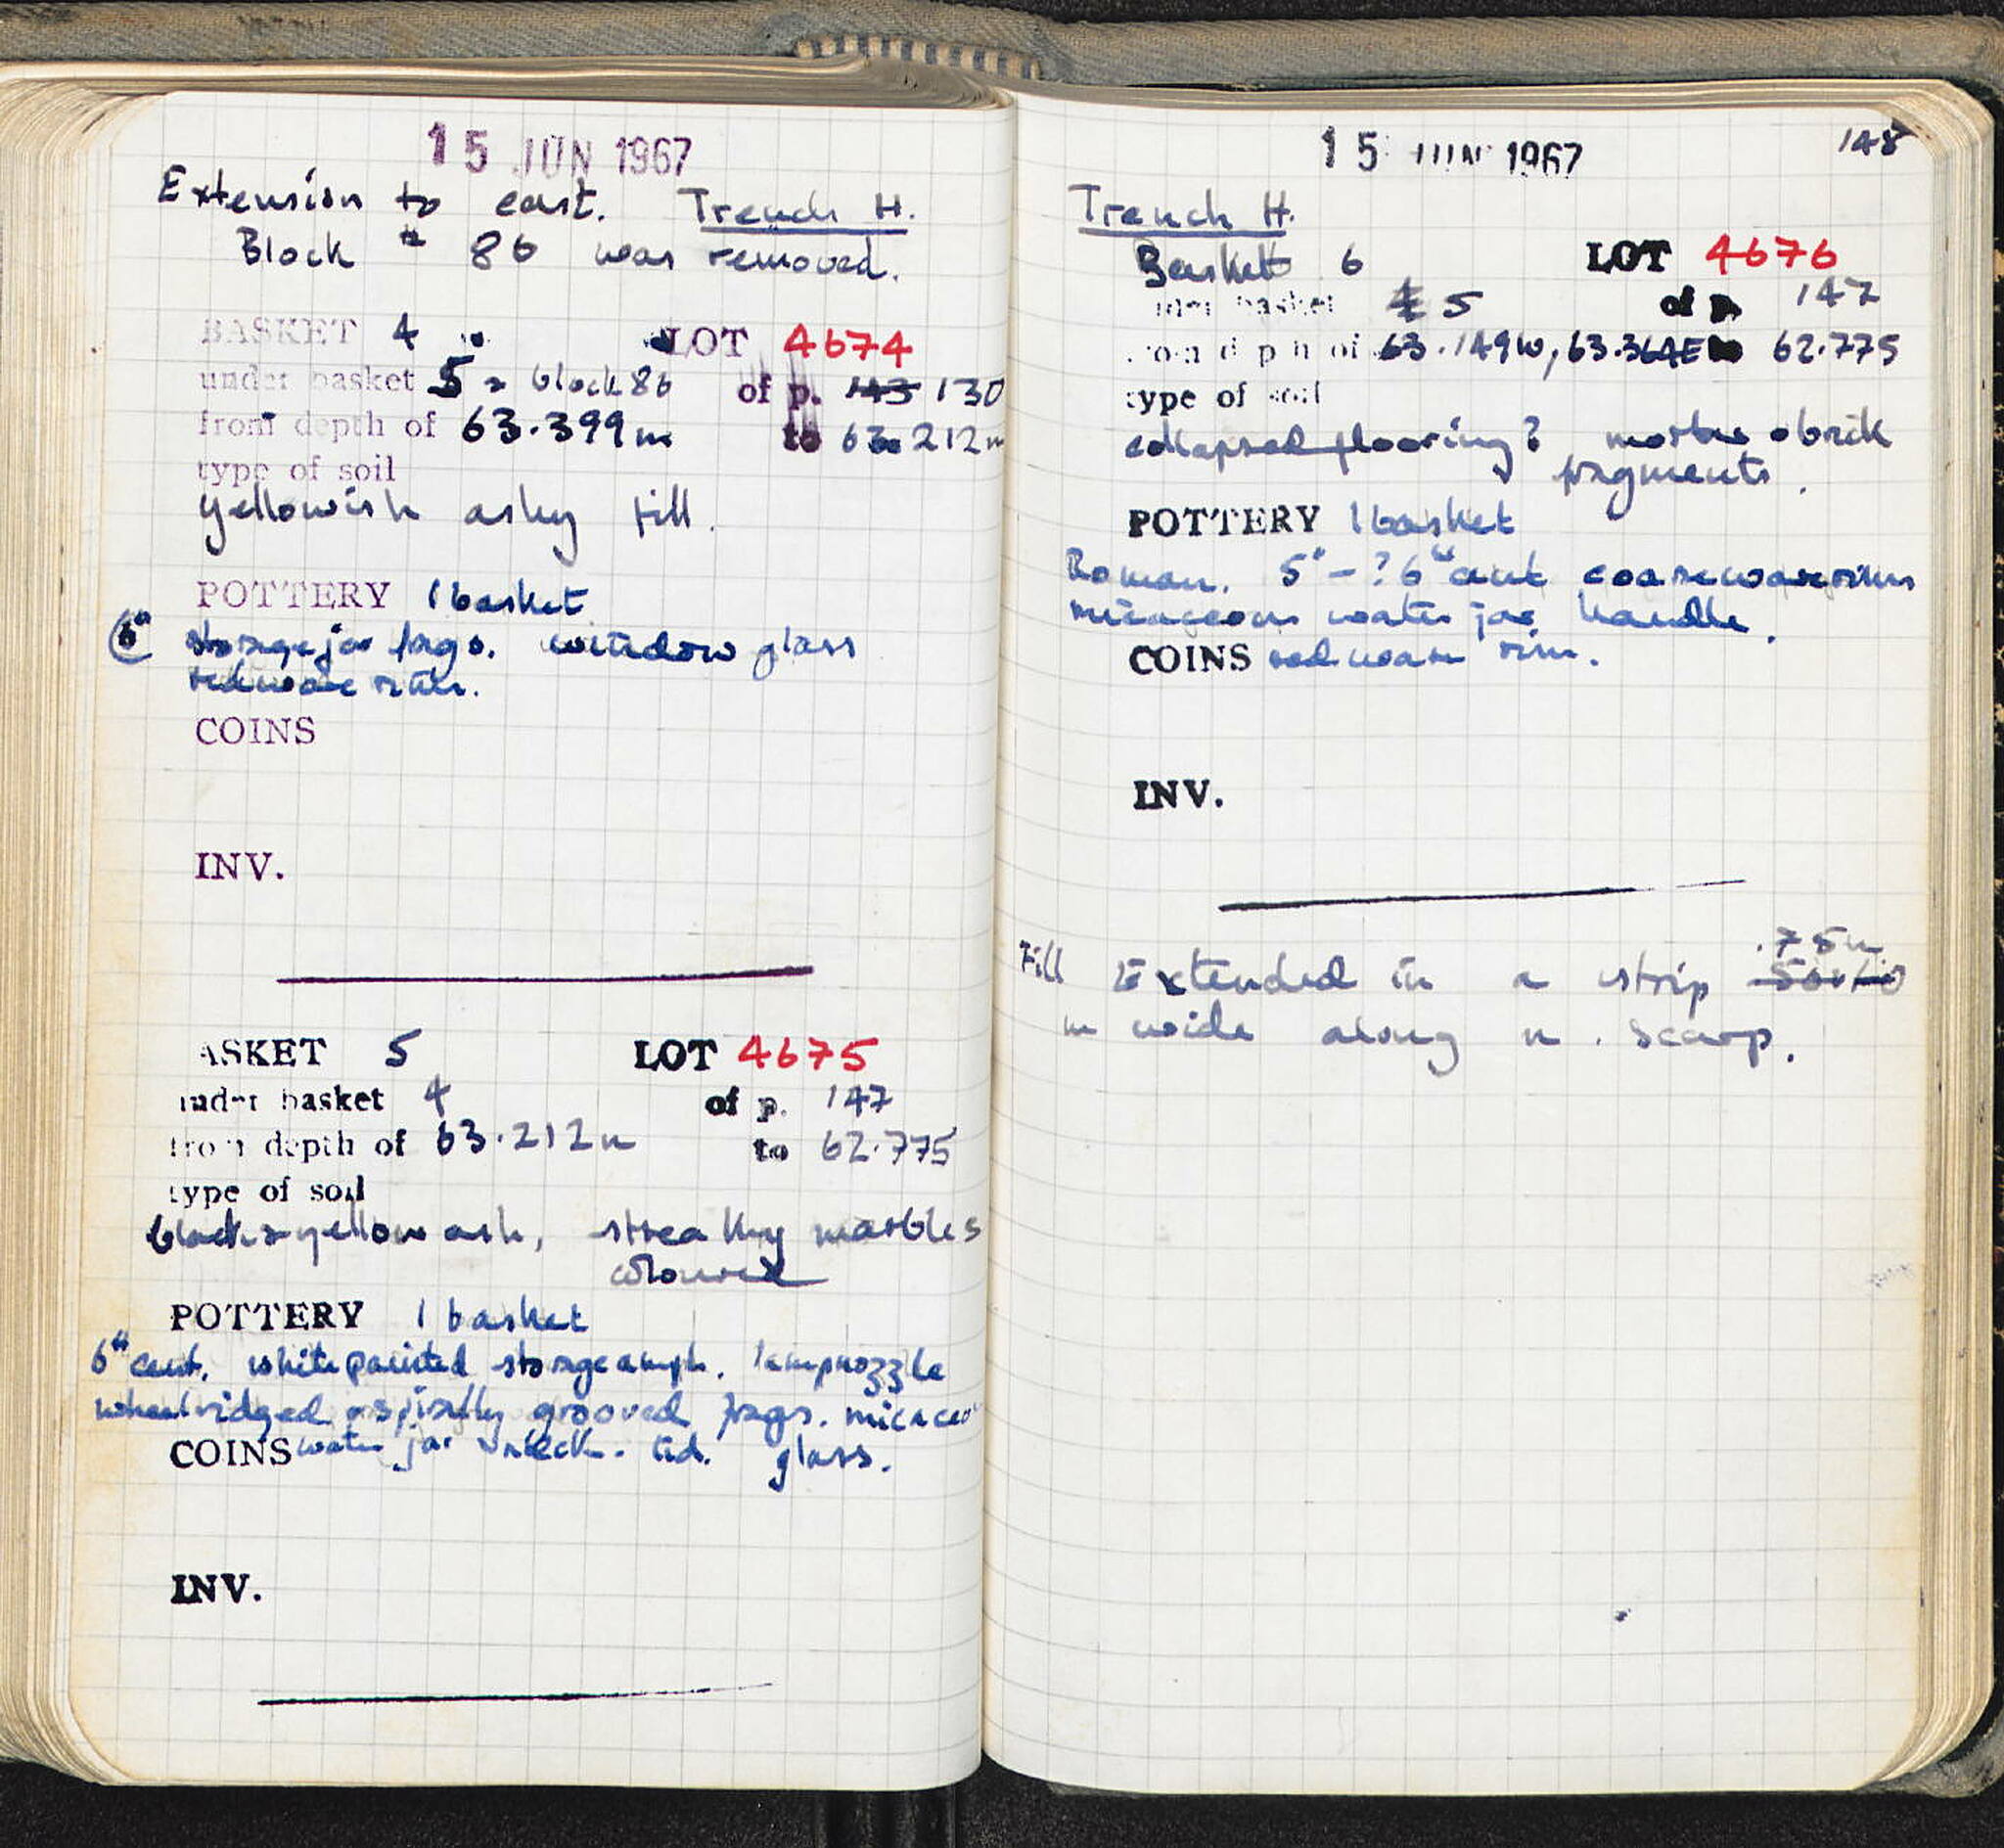 15 JUN 1967
Extension to east. Trench H.
Block # 86 was removed.
BASKET 4 LOT 4674
under basket 5 + block 86 of p. 143 130
from depth of 63.399m to 63.212m
type of soil
yellowish ashy fill.
POTTERY 1 basket
storage jar frags. window glass
redware
COINS
INV.
ASKET 5 LOT 4675
under basket 4 of p. 147
from depth of 63.212m to 62.775
type of soil
black & yellow ash, streaky marbles
coloured
POTTERY 1 basket
6th cent. white painted storage amph. lamp nozzle
wheelridged & spirally grooved frags. micaceo
COINS water jar neck. lid. glass.
INV.
148
15 JUN 1967
Trench H.
Basket 6 LOT 4676
under basket 4 5 of p. 147
from depth of 63.149W, 63.364E to 62.775
type of soil
collapsed flooring? mortar & brick
fragments.
POTTERY 1 basket
Roman. 5th - ? 6th cent coarseware rims
micaceous water jar handle.
COINS redware rim.
INV.
.75m
Fill Extended in a strip
m wide along n. scarp.